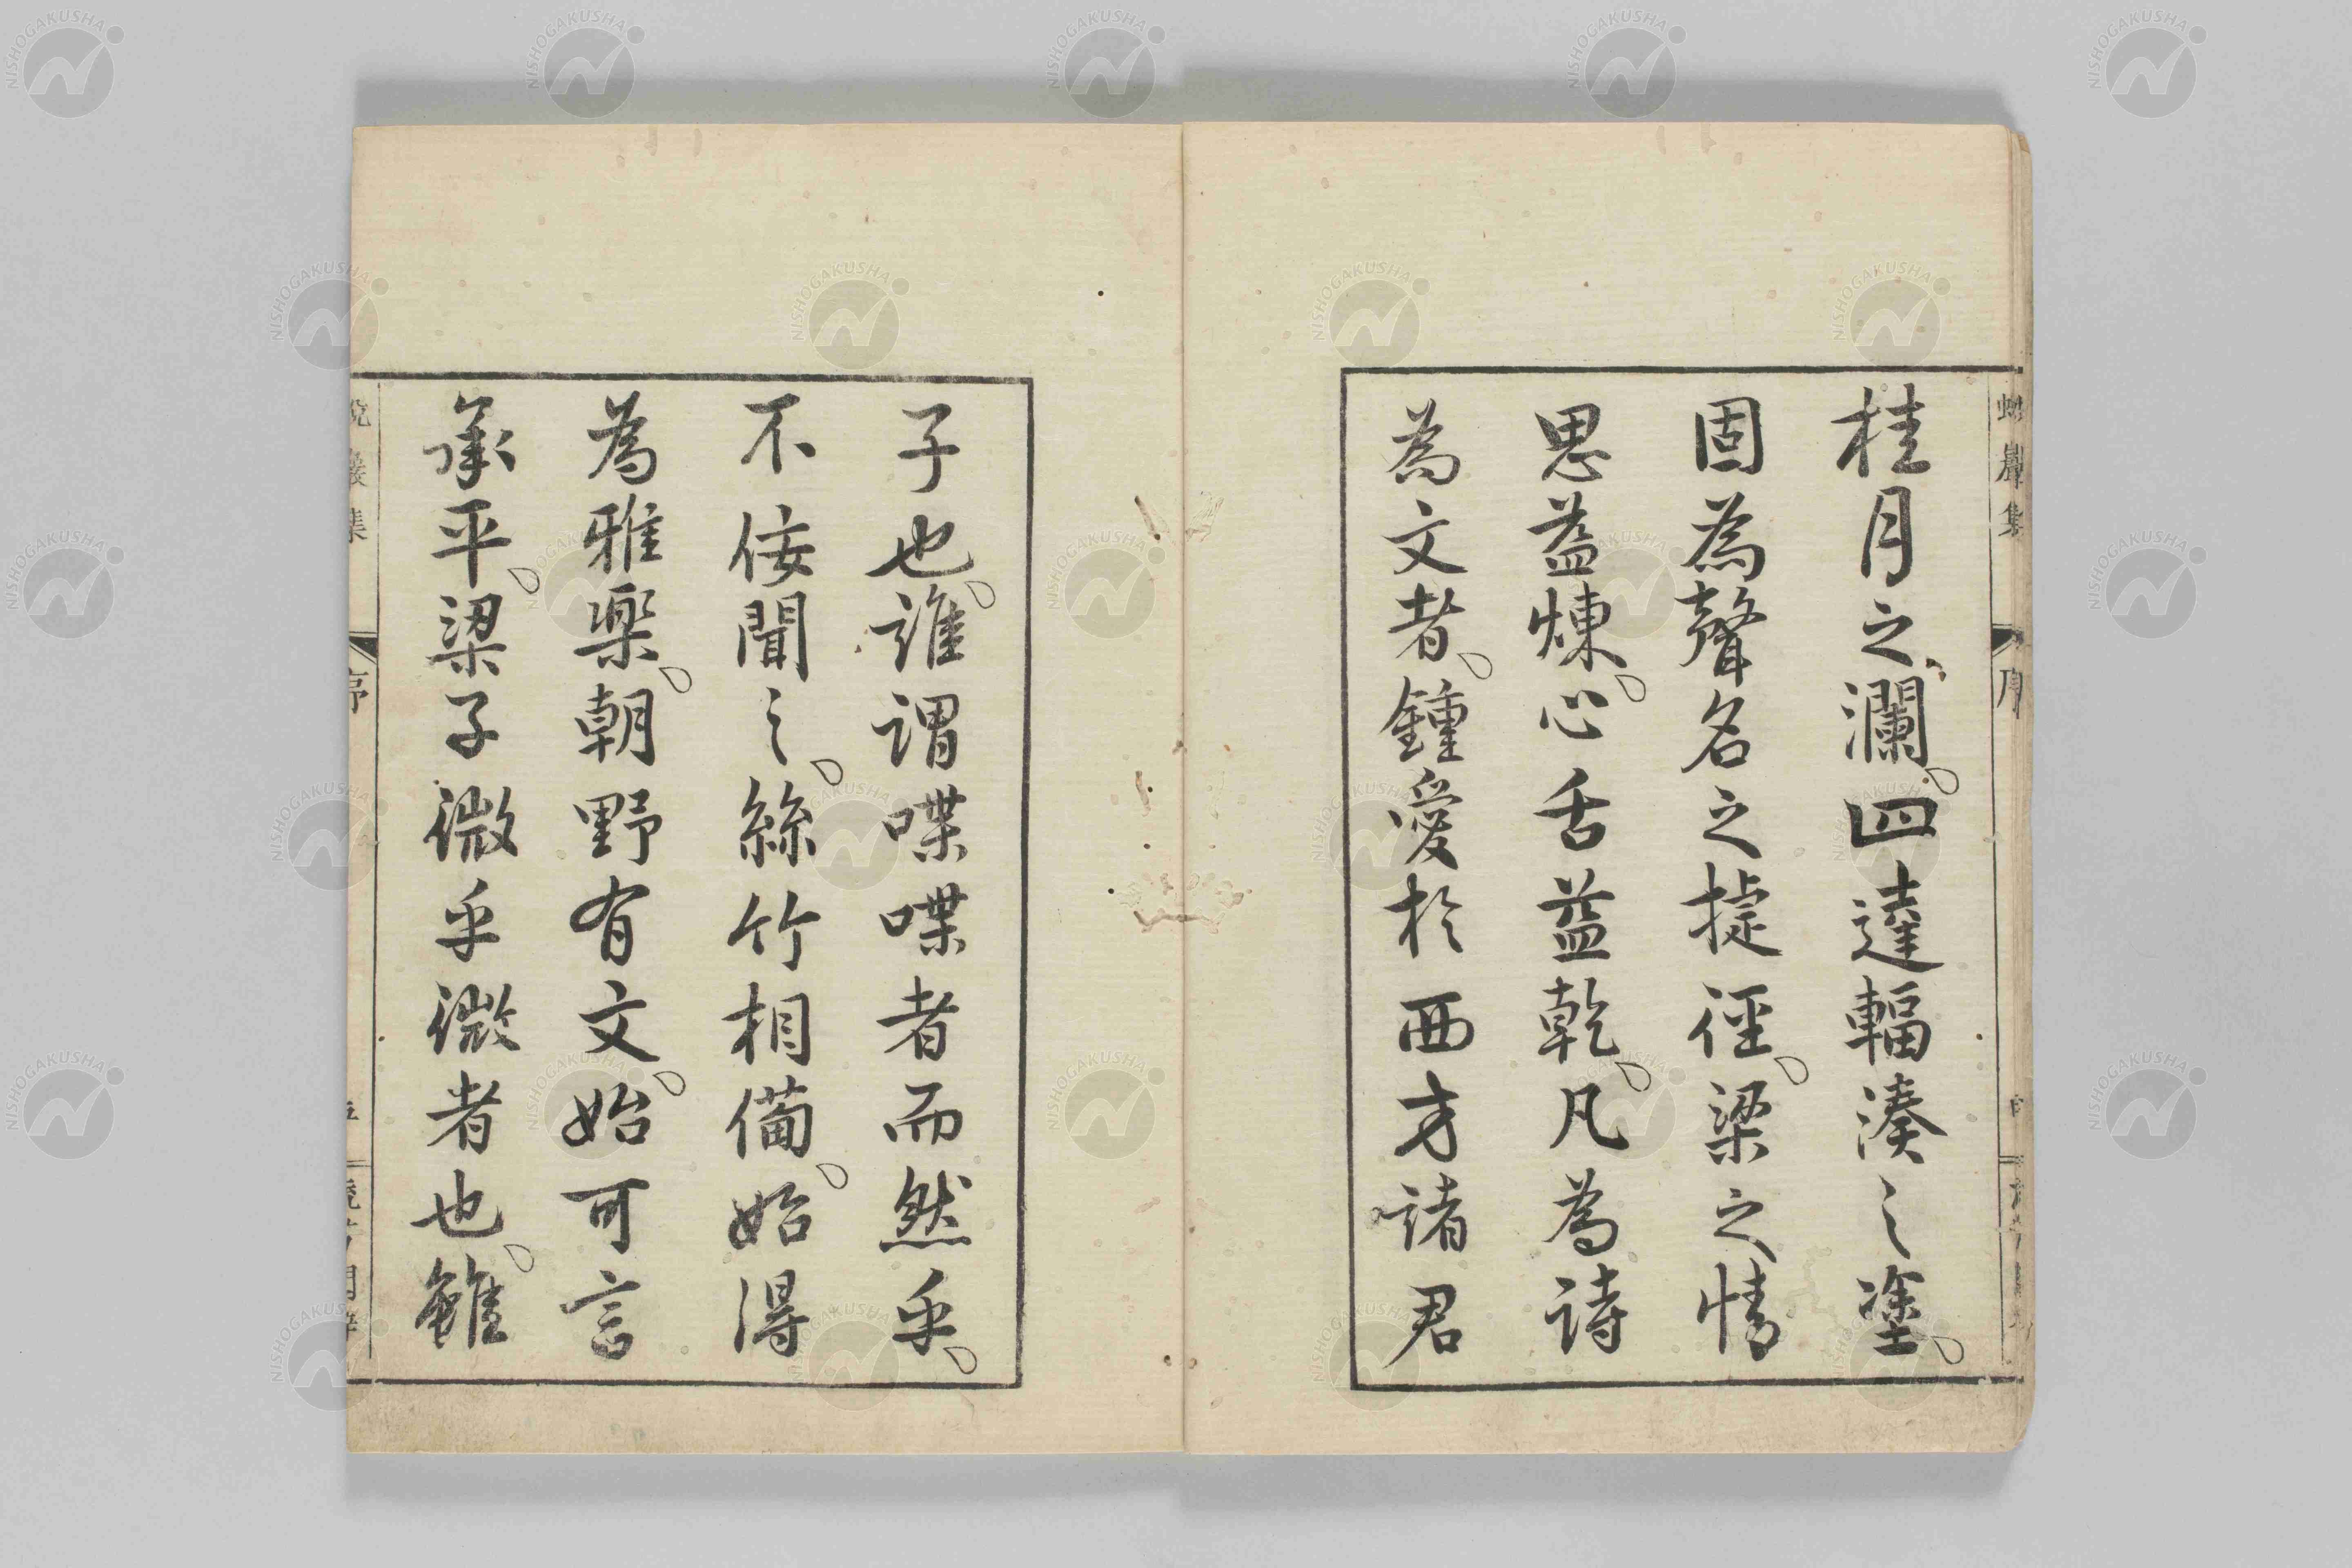 桂月之瀾。四達輻湊之塗。
固為聲名之捷徑。梁之情
思益煉。心舌益乾。凡為詩
為文者。鍾愛於西才諸君
子也。誰謂喋喋者而然乎。
不佞聞之。絲竹相備。始得
為雅樂。朝野有文。始可言
承平。梁子微乎微者也。雖
序
NISHOGAKUSHA